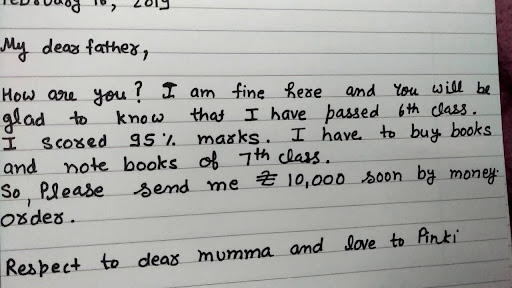 February 16, 2019
My dear father,
How are you? I am fine here and You will be
glad to know that I have passed 6th class.
I scored 95% marks. I have to buy books
and note books of 7th class.
So, Please send me ₹ 10,000 soon by money
order.
Respect to dear mumma and love to Pinki